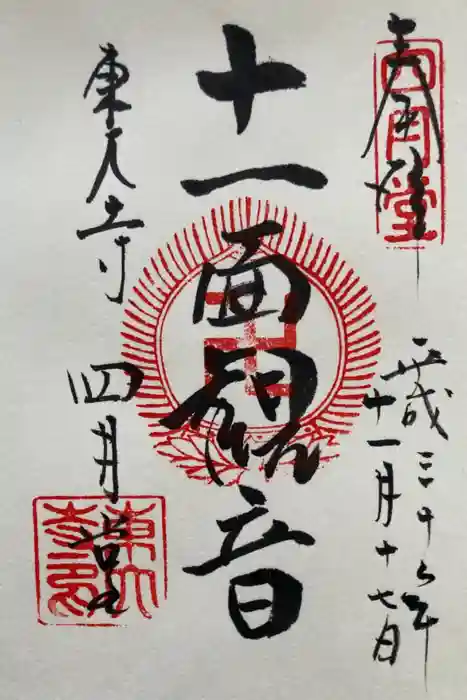 奉拝
四月堂
平成三十年
十一月十七日
十一面観音
東大寺
四月堂